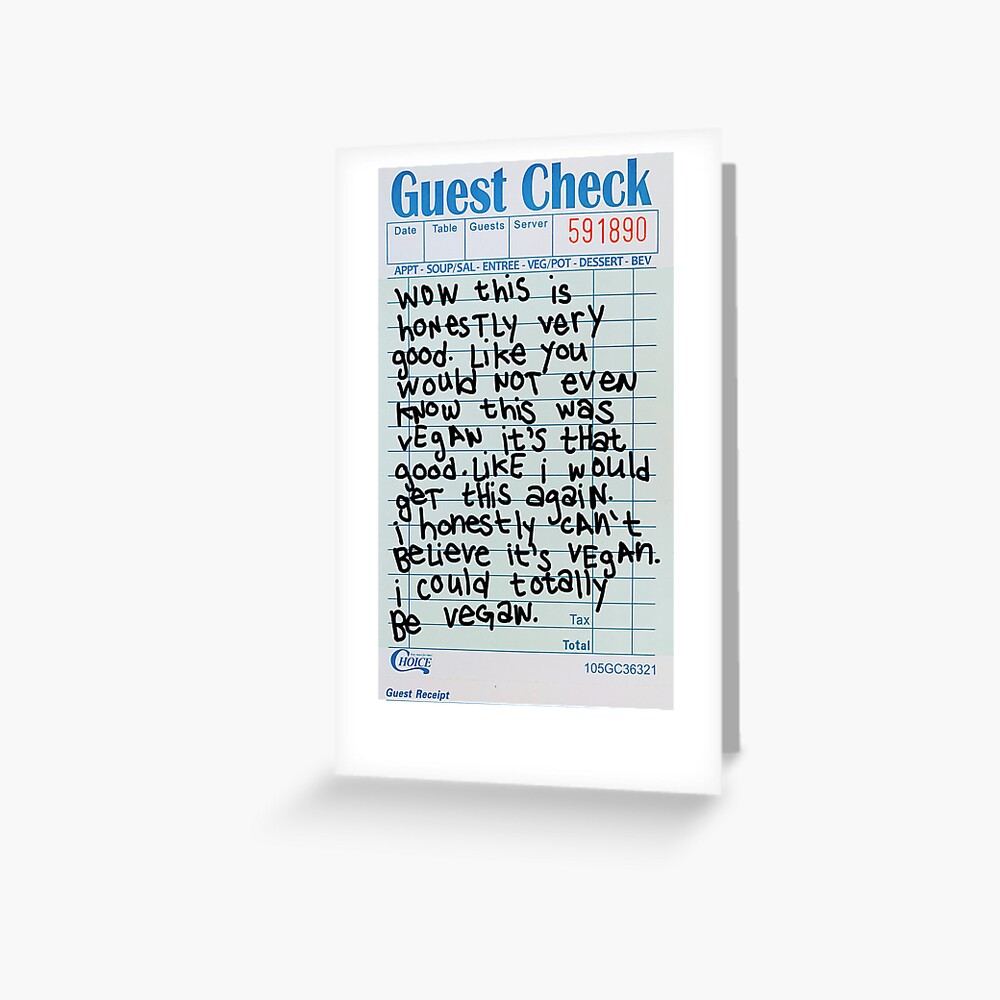 Guest Check
Date Table Guests Server 591890
APPT - SOUP/SAL - ENTREE - VEG/POT - DESSERT - BEV
WOW this is
hONESTLY very
good. Like you
would NOT EVEN
KNOW this was
vEgAN it's tHat
good. LIKE i would
geT tHis again.
i honestly cAn't
BeLieve it's vEgAn.
i could totally
Be vegan.
Tax
Total
CHOICE
105GC36321
Guest Receipt